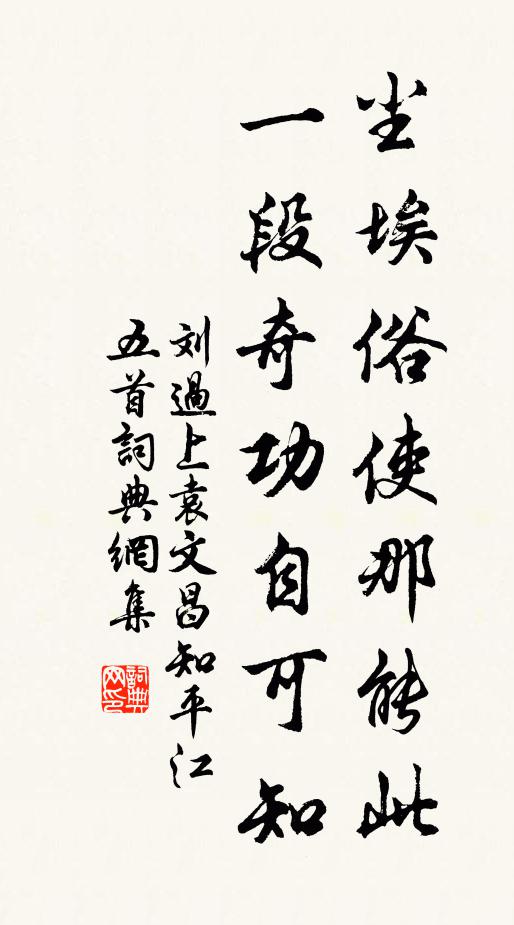 尘埃俗使那能此
一段奇功自可知
刘過上袁文昌知平江
五首詞典網集
詞典网印